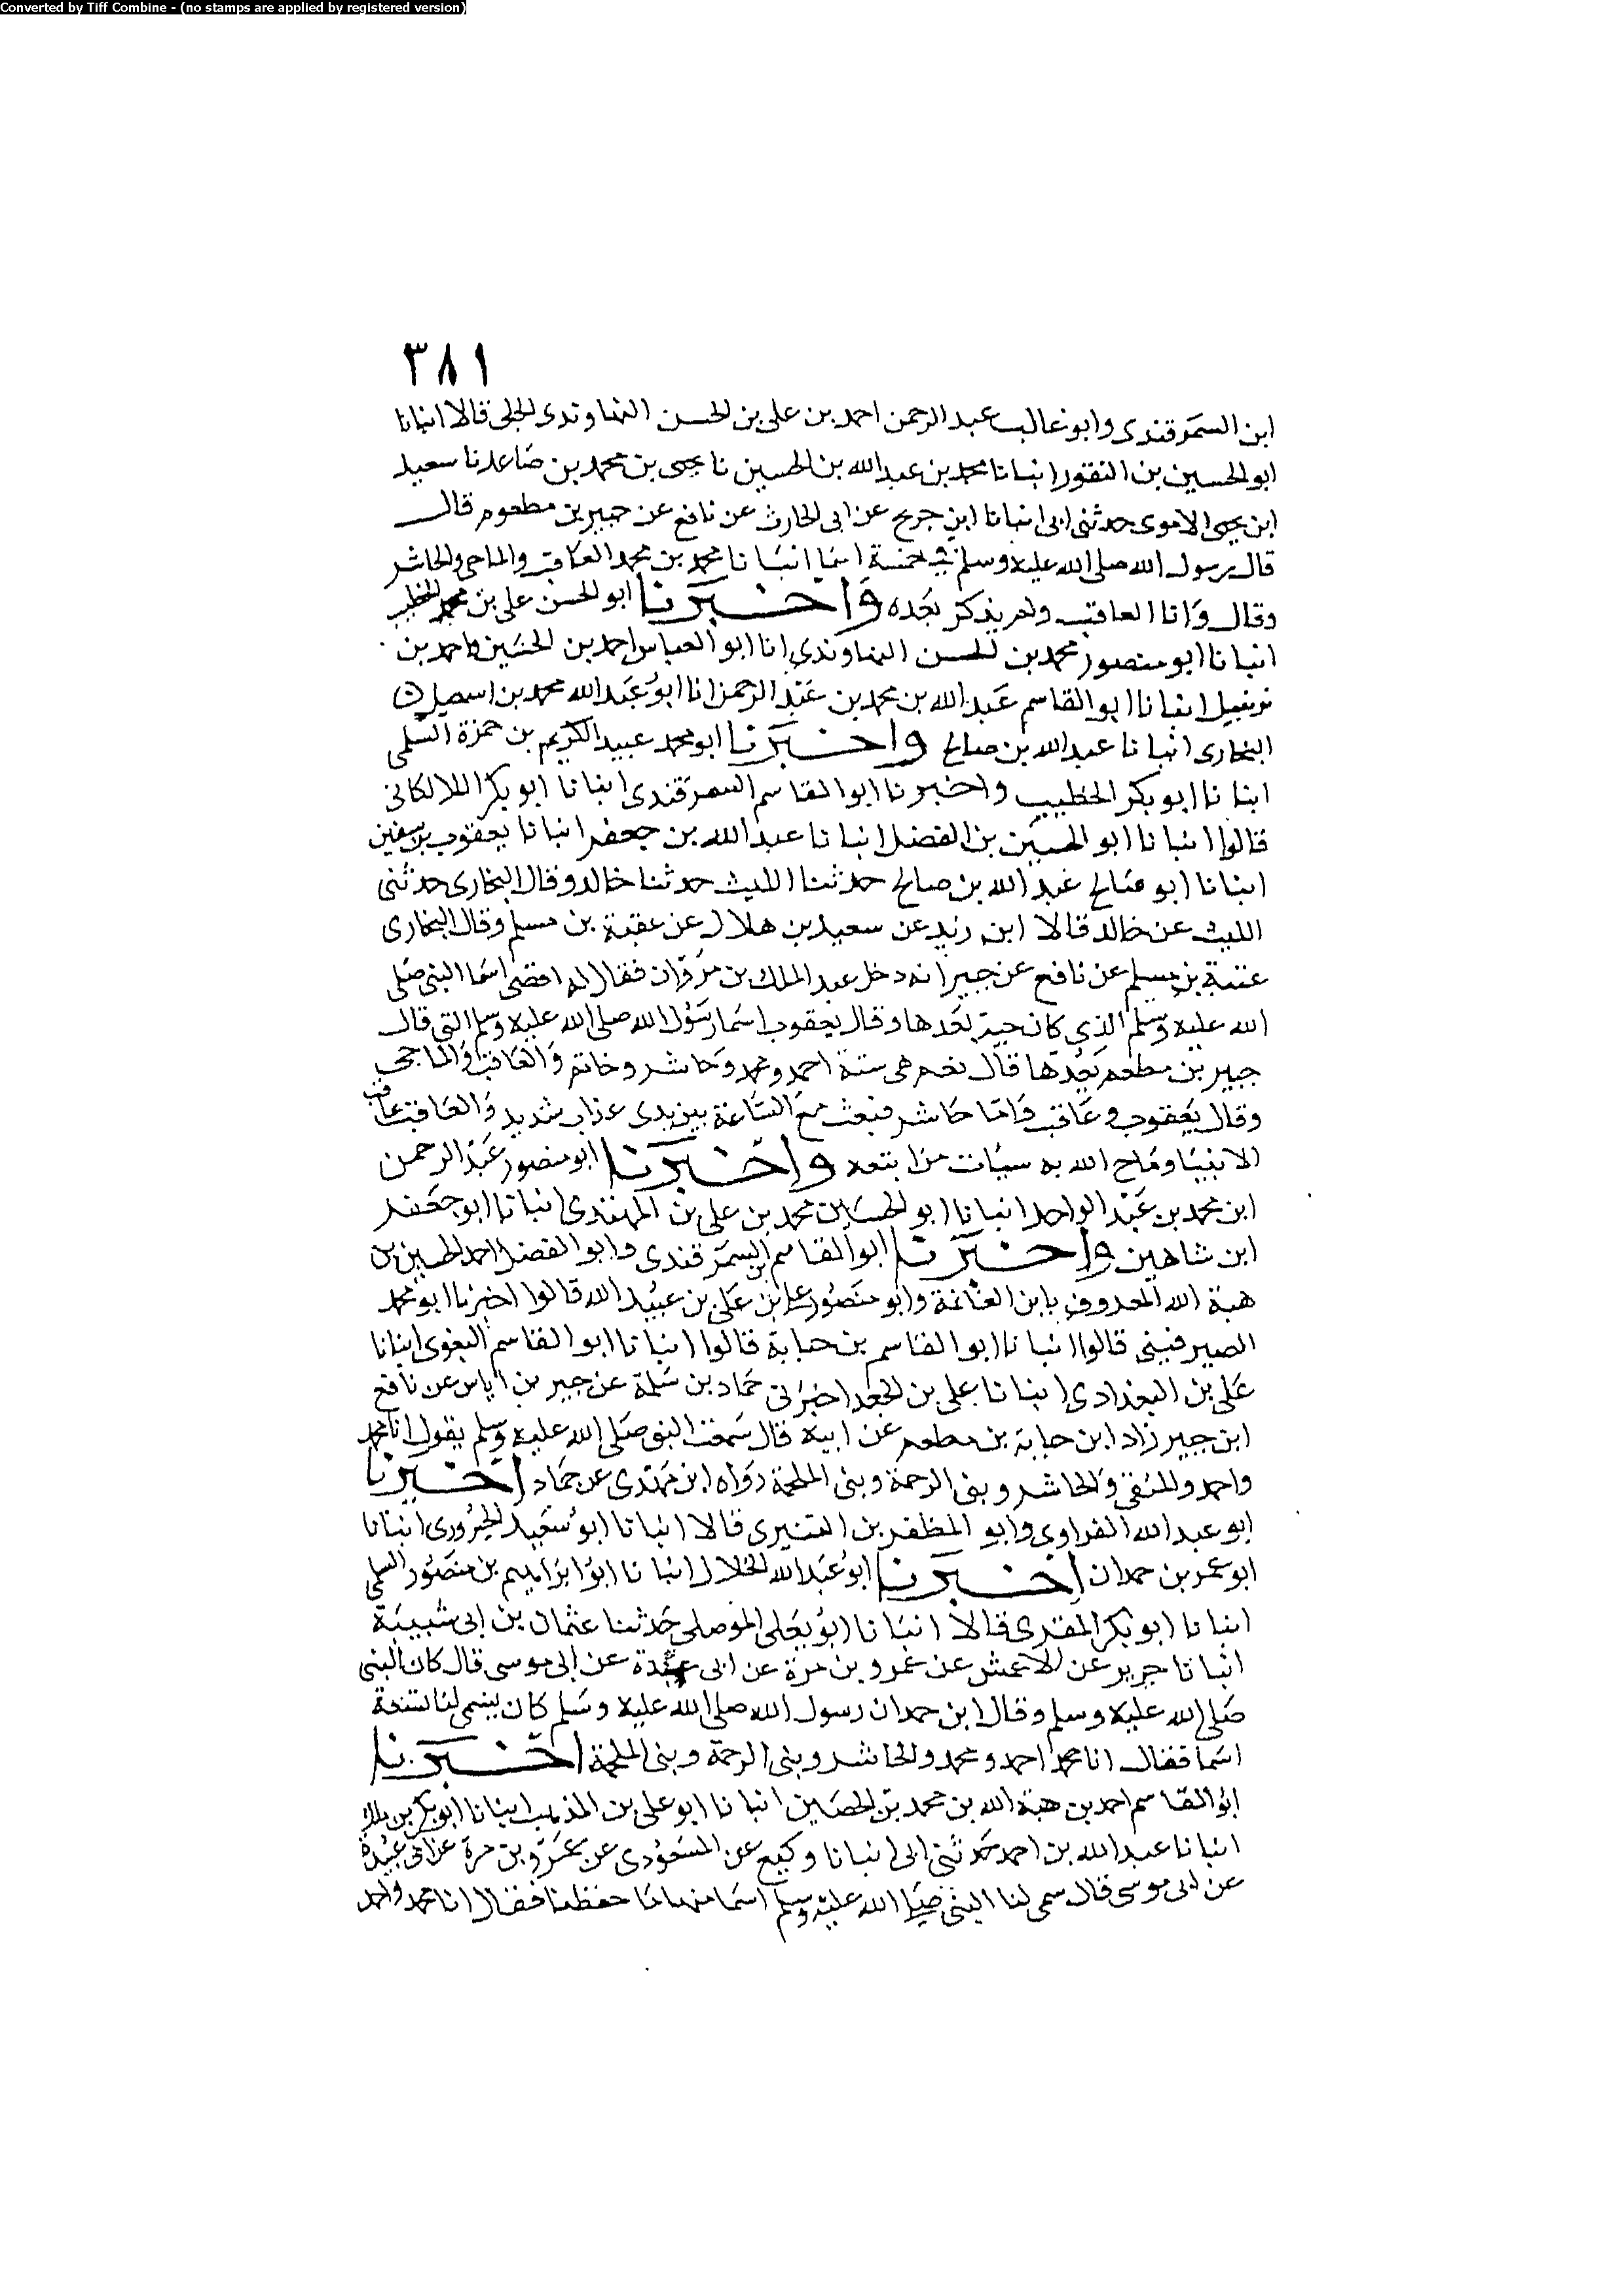 Converted by Tiff Combine - (no stamps are applied by registered version)
٣٨١
ابن السمرقندى وابو غالب عبد الرحمن احمد بن على بن الحسن النهاوندى قالا انبانا
ابو الحسين بن النقور انبانا محمد بن عبد الله بن الحسين نا يحيى بن محمد بن صاعد نا سعيد
ابن يحيى الاموى حدثنى ابى انبانا ابن جريج عن ابى الحارث عن نافع عن جبير بن مطعوم قال
قال رسول الله صلى الله عليه وسلم خمسة اسما انبانا محمد بن محمد العاقب والماحى والحاشر
وقال وانا العاقب ولم يذكر بعده واخبرنا ابو الحسن على بن محمد الخطيب
انبانا ابو منصور محمد بن الحسن النهاوندى انا ابو العباس احمد بن الحسين احمد بن
انبانا ابو القاسم عبد الله بن محمد بن عبد الرحمن انا ابو عبد الله محمد بن اسمعيل
البخارى انبانا عبد الله بن صالح واخبرنا ابو محمد عبيد الكريم بن حمزة السلمى
ابنا نا ابو بكر الخطيب واخبرنا ابو القاسم السمرقندى ابنانا ابو بكر اللالكائى
قالوا انبانا ابو الحسين بن الفضل انبانا عبد الله بن جعفر انبانا يعقوب بن سفين
ابنانا ابو صالح عبد الله بن صالح حدثنا الليث حدثنا خالد وقال البخارى حدثنى
الليث عن خالد قالا ابن زيد عن سعيد بن هلال عن عقبة بن مسلم وقال البخارى
عتبة بن مسلم عن نافع عن جبير انه دخل عبد الملك بن مروان فقال له اسما النبى صلى
الله عليه وسلم الذى كان جبير يعدها وقال يعقوب اسما رسول الله صلى الله عليه وسلم التى قال
جبير بن مطعم يعدها قال نعم هى ستة احمد ومحمد وحاشر وخاتم والعاقب والماحى
وقال يعقوب وعاقب فاما حاشر فبعث مع الساعة بين يدى عذاب شديد والعاقب عاقب
الانبيا وماح الله به سيئات من اتبعه واخبرنا ابو منصور عبد الرحمن
ابن محمد بن عبد الواحد انبانا ابو الحسين محمد بن على بن المهتدى انبانا ابو جعفر
ابن شاهين واخبرنا ابو القاسم بن السمرقندى وابو الفضل احمد الحسين بن
هبة الله المعروف بابن العالمة وابو منصور على بن على بن عبيد الله قالوا اخبرنا ابو محمد
الصيرفينى قالوا انبانا ابو القاسم بن حبابة قالوا انبانا ابو القاسم البغوى ابنانا
على بن البغدادى انبانا على بن الجعد اخبرنى حماد بن سلمة عن جبير بن اياس عن نافع
ابن جبير زاد ابن حبابة بن مطعم عن ابيه قال سمعت النبى صلى الله عليه وسلم يقول انا محمد
واحمد والمقفى والحاشر وبنى الرحمة وبنى الملحمة رواه ابن مهتدى عن حماد اخبرنا
ابو عبد الله الفراوى وابو المظفر بن القشيرى قالا انبانا ابو سعيد الجزرورى انبانا
ابو عمر بن حمدان اخبرنا ابو عبد الله الخلال انبانا ابو ابراهيم بن منصور السلمى
ابنانا ابو بكر المقرى قالا انبانا ابو يعلى الموصلى حدثنا عثمان بن ابى شيبة
انبانا جرير عن الاعمش عن عمرو بن مرة عن ابى عبيدة عن ابى موسى قال كان النبى
صلى الله عليه وسلم وقال ابن حمدان رسول الله صلى الله عليه وسلم كان يسمى لنا نفسه
اسما فقال انا محمد احمد ومحمد والحاشر وبنى الرحمة وبنى الملحمة اخبرنا
ابو القاسم احمد بن هبة الله بن محمد بن الحصين انبانا ابو على بن المذهب ابنانا ابو بكر بن ملك
انبانا عبد الله بن احمد حدثنى ابى انبانا وكيع عن المسعودى عن عمرو بن مرة عن ابى عبيدة
عن ابى موسى قال سمى لنا النبى صلى الله عليه وسلم اسما منها ما حفظنا فقال انا محمد واحمد